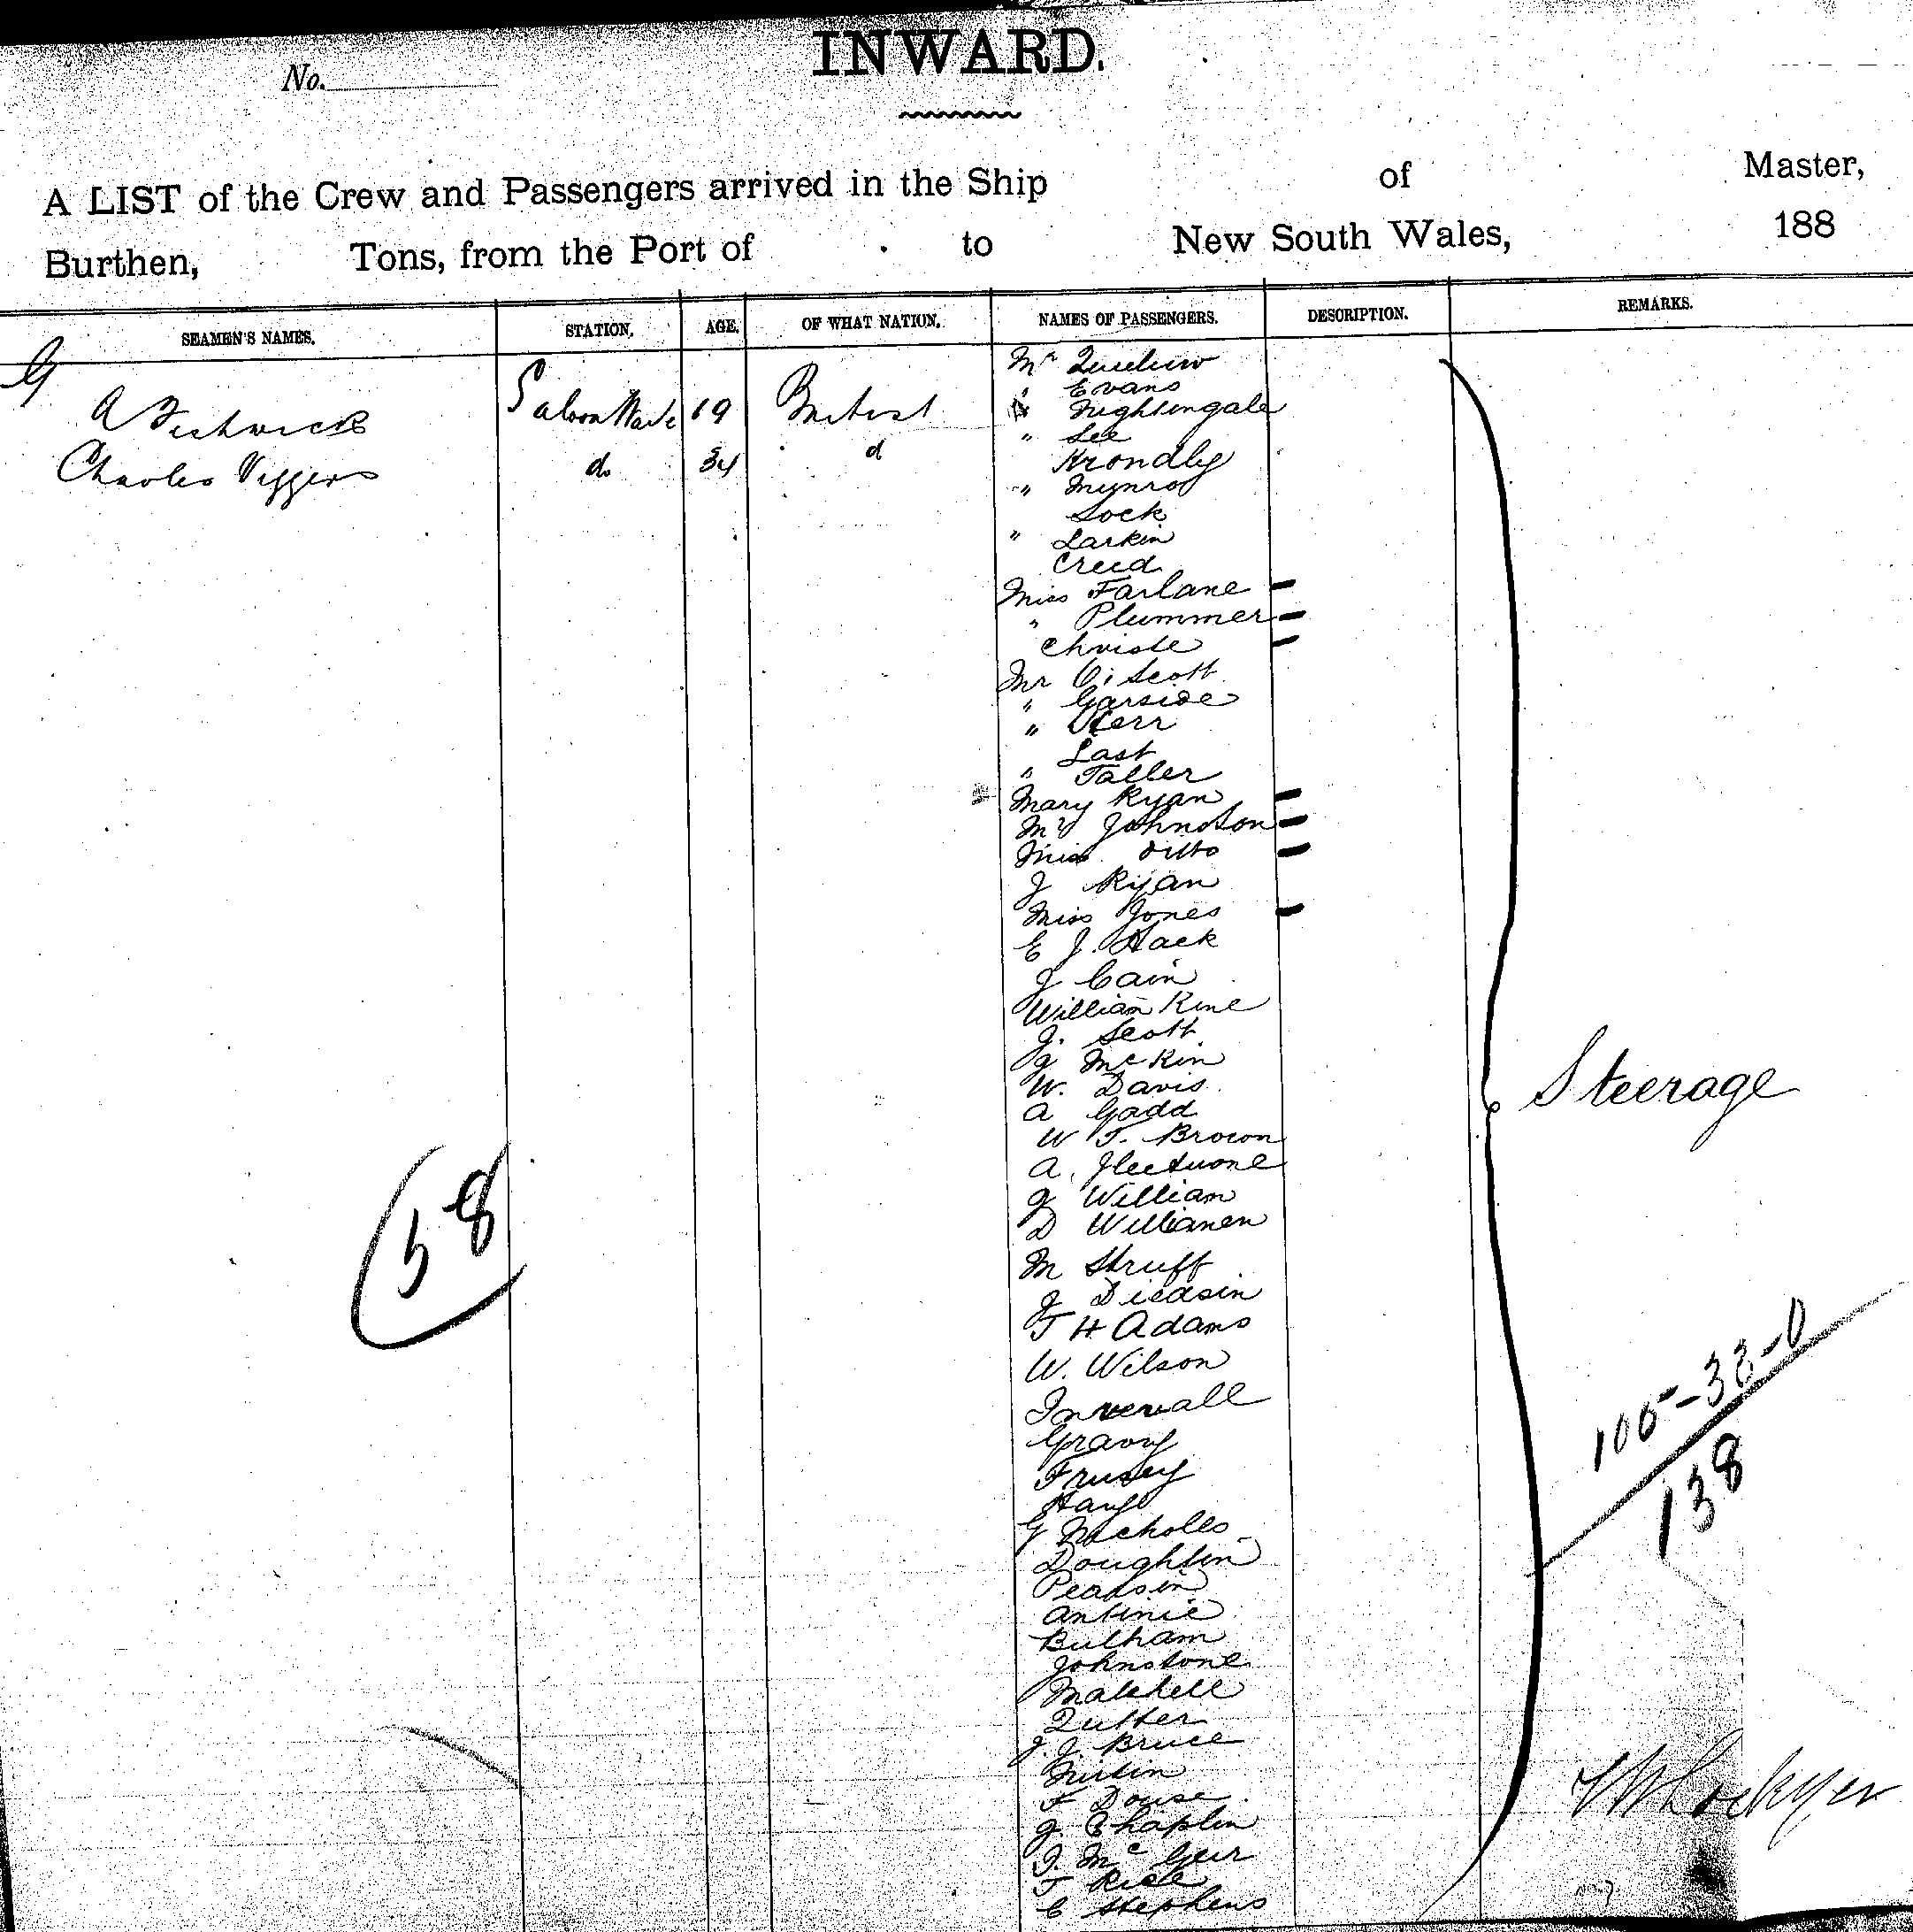 INWARD.
No.
A LIST of the Crew and Passengers arrived in the Ship of Master,
Burthen, Tons, from the Port of to New South Wales, 188
SEAMEN'S NAMES. STATION. AGE. OF WHAT NATION. NAMES OF PASSENGERS. DESCRIPTION. REMARKS.
A Fishwick Saloon 19 British
Charles Viggers do 34 d
58
Mr
" Evans
" Nightingale
" See
" Munro
Lock
" Larkin
Creed
Miss Farlane
" Plummer
Christe
Mr Scott
" Garside
" Kerr
Last
" Taller
Mary Ryan
Johnston
Miss ditto
J Ryan
Miss Jones
E J. Hack
J Cain
William Kine
J. Scott
J McKin
W. Davis
A Gadd
W T. Brown
A.
J William
D
M Shruff
J
T H Adams
W. Wilson
Gravy
G Nicholls
Doughlin
Pearson
Antinie
Bulham
Johnstone
Matchell
J. J. Bruce
F Douse
J Chaplin
J. McGeir
T Rick
E Stephens
Steerage
105-33-0
138
Lockyer